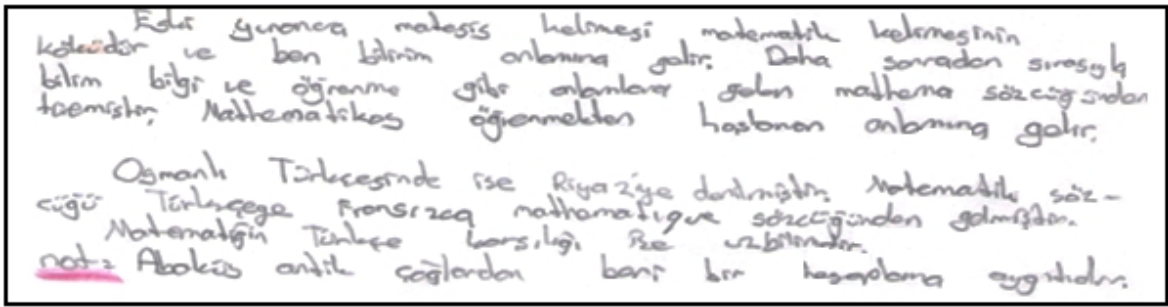 Eski yunanca matesis kelimesi matematik kelimesinin
kökúdür ve ben bilirim anlamına gelir. Daha sonradan sırasıyla
bilim bilgi ve öğrenme gibi anlamlara gelen mathema sözcüğünden
türemiştir. Mathematikos öğrenmekten hoşlanan anlamına gelir.
Osmanlı Türkçesinde ise Riyaziye denilmiştir. Matematik söz-
cüğü Türkçeye Fransızca mathematique sözcüğünden gelmiştir.
Matematiğin Türkçe karşılığı ise uzbilimdir.
not: Abaküs antik çağlardan beri bir hesaplama aygıtıdır.